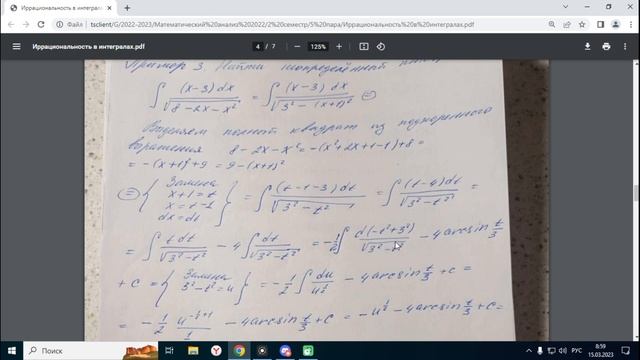 Иррациональность в интегралах.p
tsclient/G/2022-2023/Математический%20анализ%202022/2%20семестр/5%20пара/Иррациональность%20в%20интегралах.pdf
Иррациональность в интегралах.pdf 4 / 7 125%
Пример 3. Найти неопределённый
∫ (x-3)dx/√(8-2x-x²) = ∫ (x-3)dx/√(3²-(x+1)²) =
Выделяем полный квадрат из подкоренного
выражения 8-2x-x² = -(x²+2x+1-1)+8 =
= -(x+1)²+9 = 9-(x+1)²
= { Замена x+1=t x=t-1 dx=dt } = ∫ (t-1-3)dt/√(3²-t²) = ∫ (t-4)dt/√(3²-t²) =
= ∫ tdt/√(3²-t²) - 4∫ dt/√(3²-t²) = -1/2 ∫ d(-t²+3²)/√(3²- - 4arcsin t/3
+ c = { Замена 3²-t²=u } = -1/2 ∫ du/u^(1/2) - 4arcsin t/3 + c =
= -1/2 u^(-1/2+1)/1 - 4arcsin t/3 + c = -u^(1/2) - 4arcsin t/3 + c =
Поиск РУС 8:59
15.03.2023